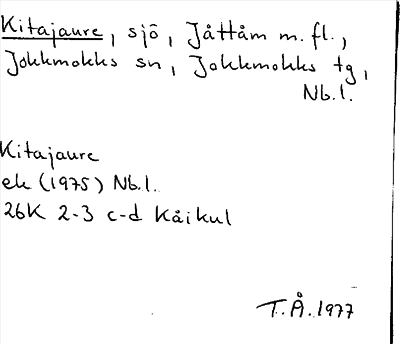 Kitajaure, sjö, Jåttåm m.fl.,
Jokkmokks sn, Jokkmokks tg,
Nb.l.
Kitajaure
ek (1975) Nb.l.
26K 2-3 c-d Kåikul
T.Å. 1977